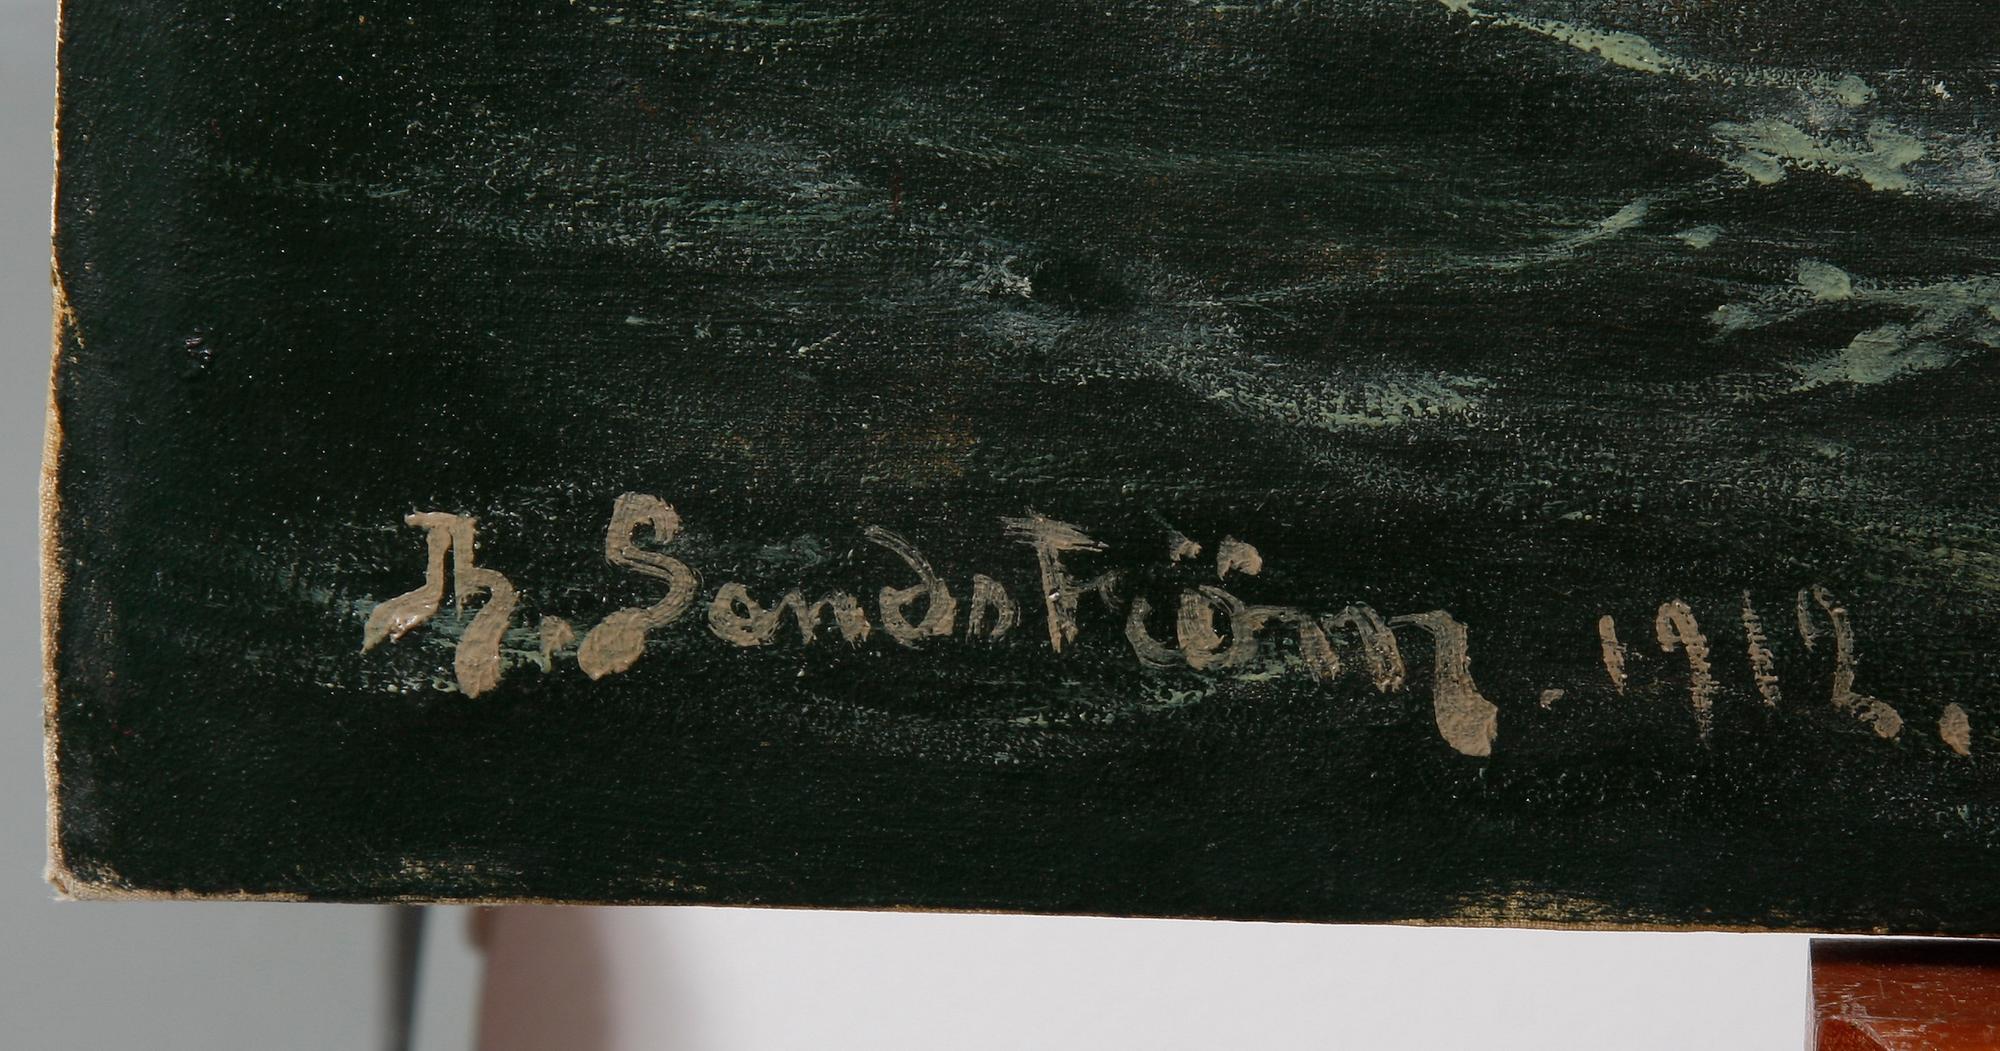 Th. Sandström. 1912.